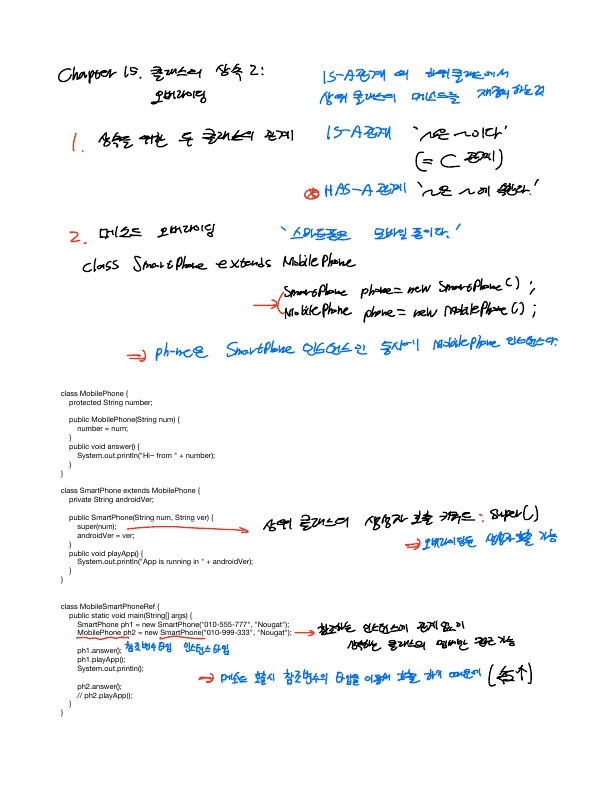 Chapter 15. 클래스의 상속 2:
오버라이딩
IS-A관계 의 하위클래스에서
상위 클래스의 메소드를 재정의하는것
1. 상속을 위한 두 클래스의 관계
IS-A관계 '~은 ~이다'
(= ⊂ 관계)
⊗ HAS-A관계 '~은 ~에 속한다.'
2. 메소드 오버라이딩
'스마트폰은 모바일 폰이다.'
class SmartPhone extends MobilePhone
→ SmartPhone phone = new SmartPhone();
MobilePhone phone = new MobilePhone();
⇒ phone은 SmartPhone 인스턴스인 동시에 MobilePhone 인스턴스다.
class MobilePhone {
protected String number;
public MobilePhone(String num) {
number = num;
}
public void answer() {
System.out.println("Hi~ from " + number);
}
}
class SmartPhone extends MobilePhone {
private String androidVer;
public SmartPhone(String num, String ver) {
super(num); → 상위 클래스의 생성자 호출 키워드 : super()
androidVer = ver; ⇒ 오버라이딩된 생성자 호출 가능
}
public void playApp() {
System.out.println("App is running in " + androidVer);
}
}
class MobileSmartPhoneRef {
public static void main(String[] args) {
SmartPhone ph1 = new SmartPhone("010-555-777", "Nougat");
MobilePhone ph2 = new SmartPhone("010-999-333", "Nougat"); → 참조하는 인스턴스에 관계없이
참조변수타입 인스턴스타입
클래스의 멤버만 접근 가능
ph1.answer();
ph1.playApp();
System.out.println();
→ 메소드 호출시 참조변수의 타입을 이용해 호출 하기 때문에
ph2.answer();
// ph2.playApp();
}
}